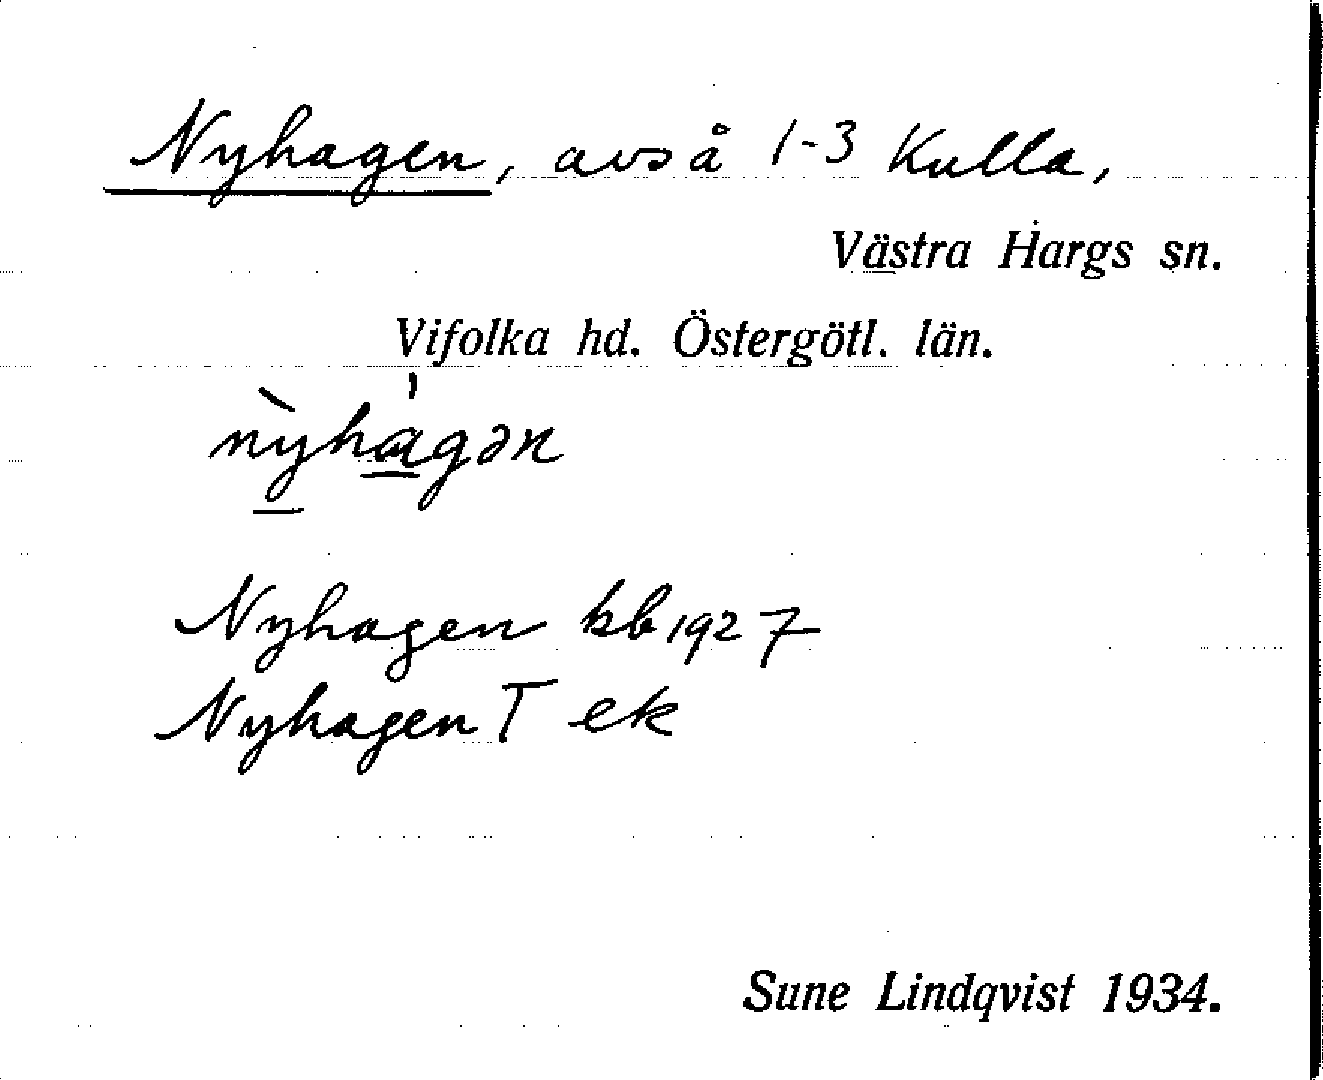 Nyhagen, avs å 1-3 Kulla,
Västra Hargs sn.
Vifolka hd. Östergötl. län.
nỳhágən
Nyhagen kb 1927
Nyhagen T ek
Sune Lindqvist 1934.